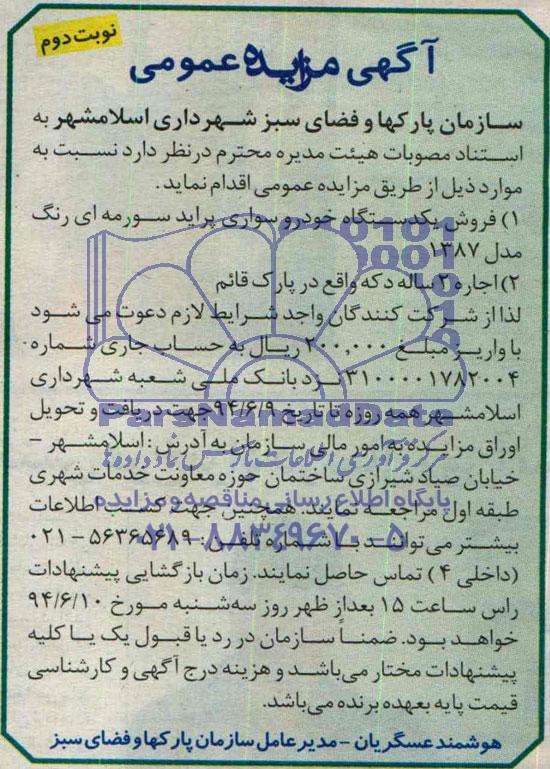 نوبت دوم
آگهی مزایده عمومی
سازمان پارکها و فضای سبز شهرداری اسلامشهر به
استناد مصوبات هیئت مدیره محترم درنظر دارد نسبت به
موارد ذیل از طریق مزایده عمومی اقدام نماید.
۱) فروش یکدستگاه خودرو سواری پراید سورمه ای رنگ
مدل ۱۳۸۷
۲) اجاره ۲ ساله دکه واقع در پارک قائم
لذا از شرکت کنندگان واجد شرایط لازم دعوت می شود
با واریز مبلغ ۲۰۰,۰۰۰ ریال به حساب جاری شماره
۳۱۰۰۰۰۱۷۸۲۰۰۴ نزد بانک ملی شعبه شهرداری
اسلامشهر همه روزه تا تاریخ ۹۴/۶/۹ جهت دریافت و تحویل
ParsNamadData
اوراق مزایده به امور مالی سازمان به آدرس: اسلامشهر –
مرکز فرآوری اطلاعات پارس نماد داده ها
خیابان صیاد شیرازی ساختمان حوزه معاونت خدمات شهری
پایگاه اطلاع رسانی مناقصه و مزایده
طبقه اول مراجعه نمایند. همچنین جهت کسب اطلاعات
۰۲۱-۸۸۳۴۹۶۷۰-۵
بیشتر می توانند با شماره تلفن: ۵۶۳۶۵۶۸۹ – ۰۲۱
(داخلی ۴) تماس حاصل نمایند. زمان بازگشایی پیشنهادات
راس ساعت ۱۵ بعداز ظهر روز سه‌شنبه مورخ ۹۴/۶/۱۰
خواهد بود. ضمناً سازمان در رد یا قبول یک یا کلیه
پیشنهادات مختار می‌باشد و هزینه درج آگهی و کارشناسی
قیمت پایه بعهده برنده می‌باشد.
هوشمند عسگریان – مدیر عامل سازمان پارکها و فضای سبز